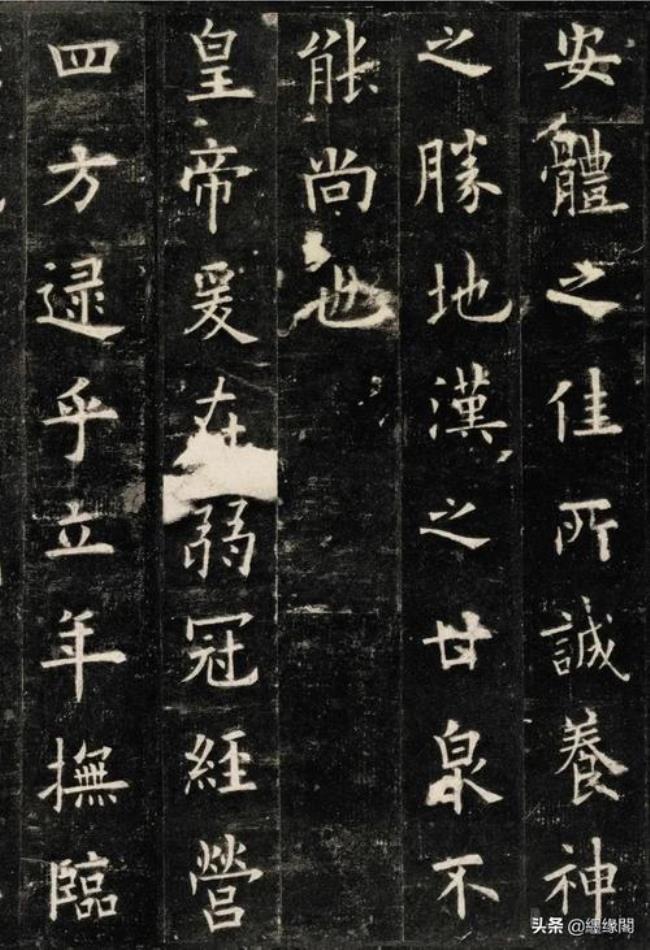 安體之佳所誠養神
之勝地漢之甘泉不
能尚也
皇帝爰在弱冠經營
四方逮乎立年撫臨
头条 @缘閣